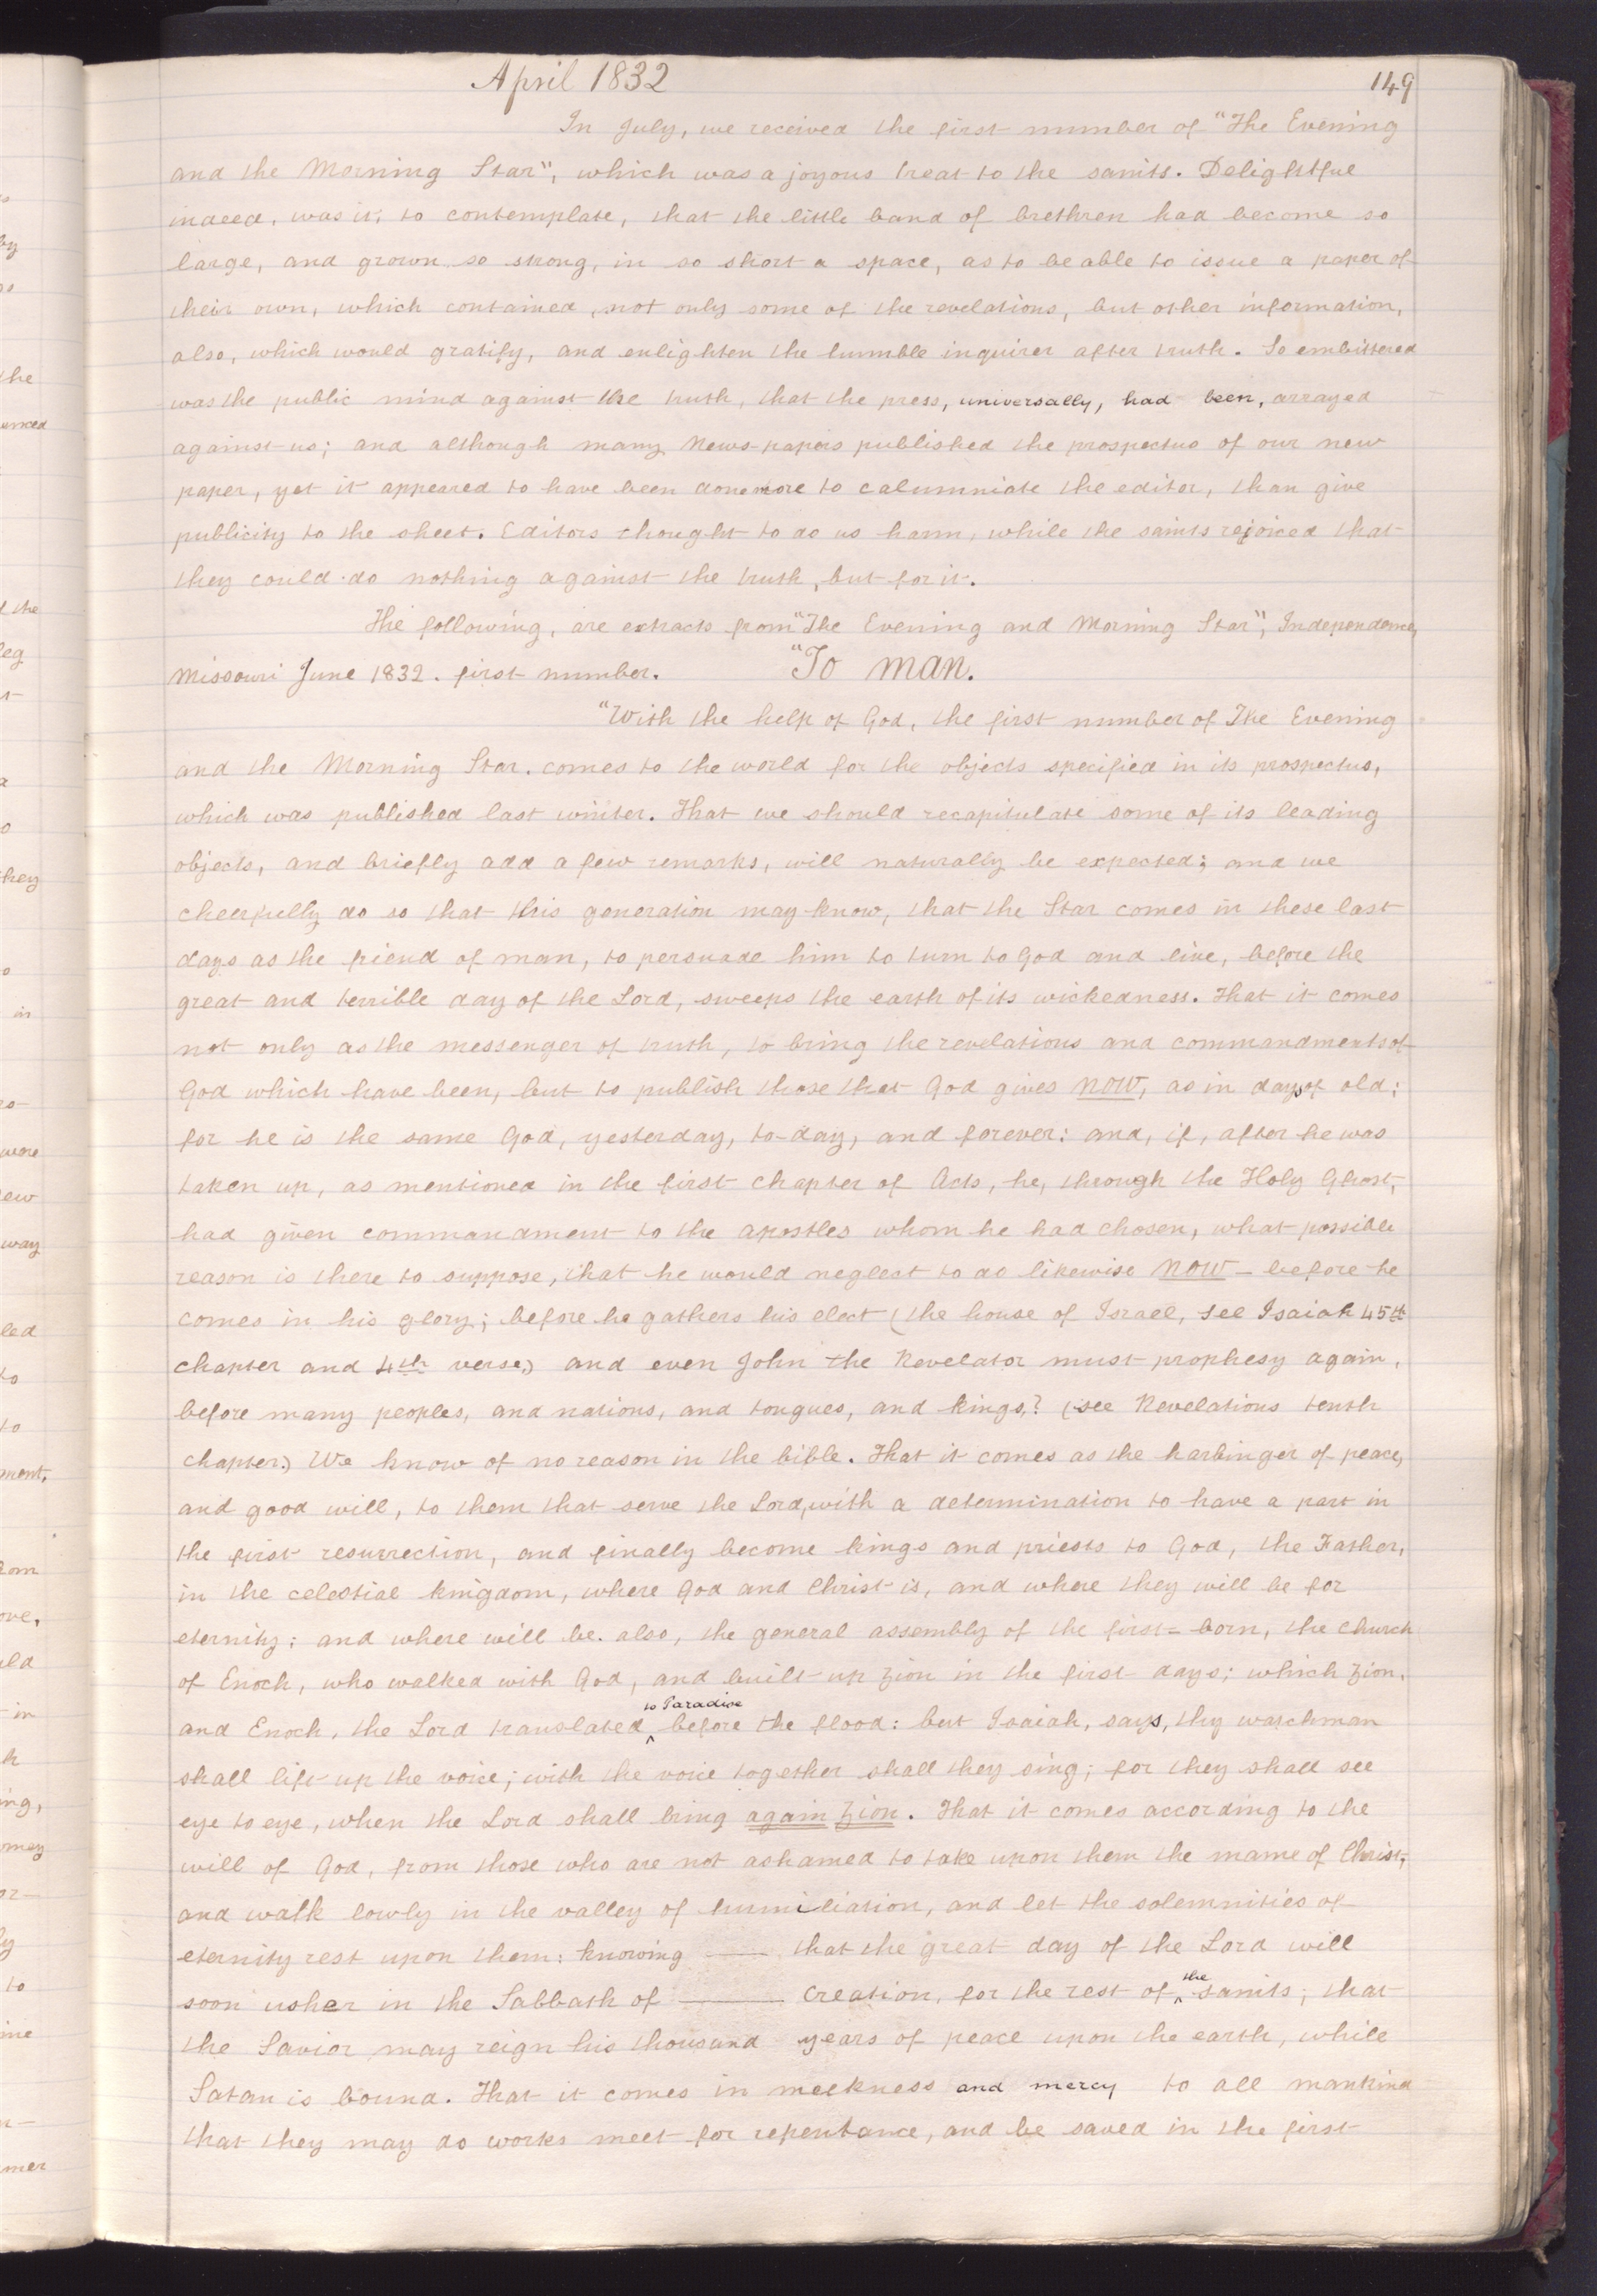 April 1832
149
In July, we received the first number of "The Evening
and the Morning Star", which was a joyous treat to the saints. Delightful
indeed, was it, to contemplate, that the little band of brethren had become so
large, and grown so strong, in so short a space, as to be able to issue a paper of
their own, which contained, not only some of the revelations, but other information,
also, which would gratify, and enlighten the humble inquirer after truth. So embittered
was the public mind against the truth, that the press, universally, had been, arrayed
against us; and although many News-papers published the prospectus of our new
paper, yet it appeared to have been done more to calumniate the editor, than give
publicity to the sheet. Editors thought to do us harm, while the saints rejoiced that
they could do nothing against the truth, but for it.
The following, are extracts from "The Evening and Morning Star", Independence,
Missouri June 1832. first number. "To man.
"With the help of God, the first number of The Evening
and the Morning Star. comes to the world for the objects specified in its prospectus,
which was published last winter. That we should recapitulate some of its leading
objects, and briefly add a few remarks, will naturally be expected; and we
cheerfully do so that this generation may know, that the Star comes in these last
days as the friend of man, to persuade him to turn to God and live, before the
great and terrible day of the Lord, sweeps the earth of its wickedness. That it comes
not only as the messenger of truth, to bring the revelations and commandments of
God which have been, but to publish those that God gives NOW, as in days of old;
for he is the same God, yesterday, to-day, and forever: and, if, after he was
taken up, as mentioned in the first chapter of Acts, he, through the Holy Ghost,
had given commandment to the apostles whom he had chosen, what possible
reason is there to suppose, that he would neglect to do likewise NOW – before he
comes in his glory; before he gathers his elect (the house of Israel, see Isaiah 45th
chapter and 4th verse,) and even John the Revelator must prophesy again,
before many peoples, and nations, and tongues, and kings,? (see Revelations tenth
chapter.) We know of no reason in the bible. That it comes as the harbinger of peace,
and good will, to them that serve the Lord, with a determination to have a part in
the first resurrection, and finally become kings and priests to God, the Father,
in the celestial kingdom, where God and Christ is, and where they will be for
eternity; and where will be. also, the general assembly of the first-born, the church
of Enoch, who walked with God, and built up Zion in the first days; which Zion,
and Enoch, the Lord translated ^to Paradise before the flood: but Isaiah, says, thy watchman
shall lift up the voice; with the voice together shall they sing; for they shall see
eye to eye, when the Lord shall bring again Zion. That it comes according to the
will of God, from those who are not ashamed to take upon them the name of Christ,
and walk lowly in the valley of humiliation, and let the solemnities of
eternity rest upon them: knowing —— that the great day of the Lord will
soon usher in the Sabbath of —— creation, for the rest of ^the saints; that
the Savior may reign his thousand years of peace upon the earth, while
Satan is bound. That it comes in meekness and mercy to all mankind
that they may do works meet for repentance, and be saved in the first